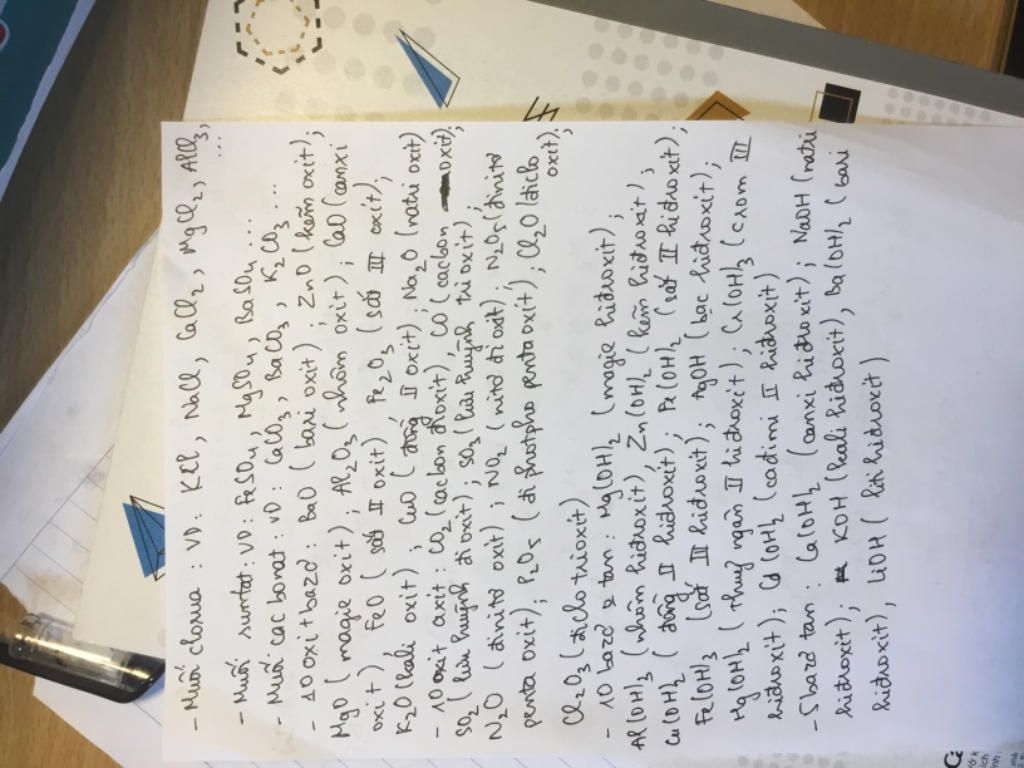 - Muối clorua : VD : KCl, NaCl, CaCl2, MgCl2, AlCl3, ...
- Muối sunfat : VD : FeSO4, MgSO4, BaSO4 ...
- Muối cacbonat : VD : CaCO3, BaCO3, K2CO3 ...
- 10 oxit bazơ : BaO (bari oxit) ; ZnO (kẽm oxit) ;
MgO (magie oxit) ; Al2O3 (nhôm oxit) ; CaO (canxi
oxit) FeO (sắt II oxit) Fe2O3 (sắt III oxit) ;
K2O (kali oxit) ; CuO (đồng II oxit) ; Na2O (natri oxit)
- 10 oxit axit : CO2 (cacbon đioxit), CO (cacbon oxit) ;
SO2 (lưu huỳnh đi oxit) ; SO3 (lưu huỳnh tri oxit) ;
N2O (đinitơ oxit) ; NO2 (nitơ đi oxit) ; N2O5 (đinitơ
penta oxit) ; P2O5 (đi photpho penta oxit) ; Cl2O (điclo
oxit) ;
Cl2O3 (điclo trioxit)
- 10 bazơ tan : Mg(OH)2 (magie hiđroxit) ;
Al(OH)3 (nhôm hiđroxit) Zn(OH)2 (kẽm hiđroxit) ;
Cu(OH)2 (đồng II hiđroxit) ; Fe(OH)2 (sắt II hiđroxit) ;
Fe(OH)3 (sắt III hiđroxit) ; AgOH (bạc hiđroxit) ;
Hg(OH)2 (thuỷ ngân II hiđroxit) ; Cr(OH)3 (crom III
hiđroxit) ; Cd(OH)2 (cađimi II hiđroxit)
- 5 bazơ tan : Ca(OH)2 (canxi hiđroxit) ; NaOH (natri
hiđroxit) ; KOH (kali hiđroxit), Ba(OH)2 (bari
hiđroxit), LiOH (liti hiđroxit)